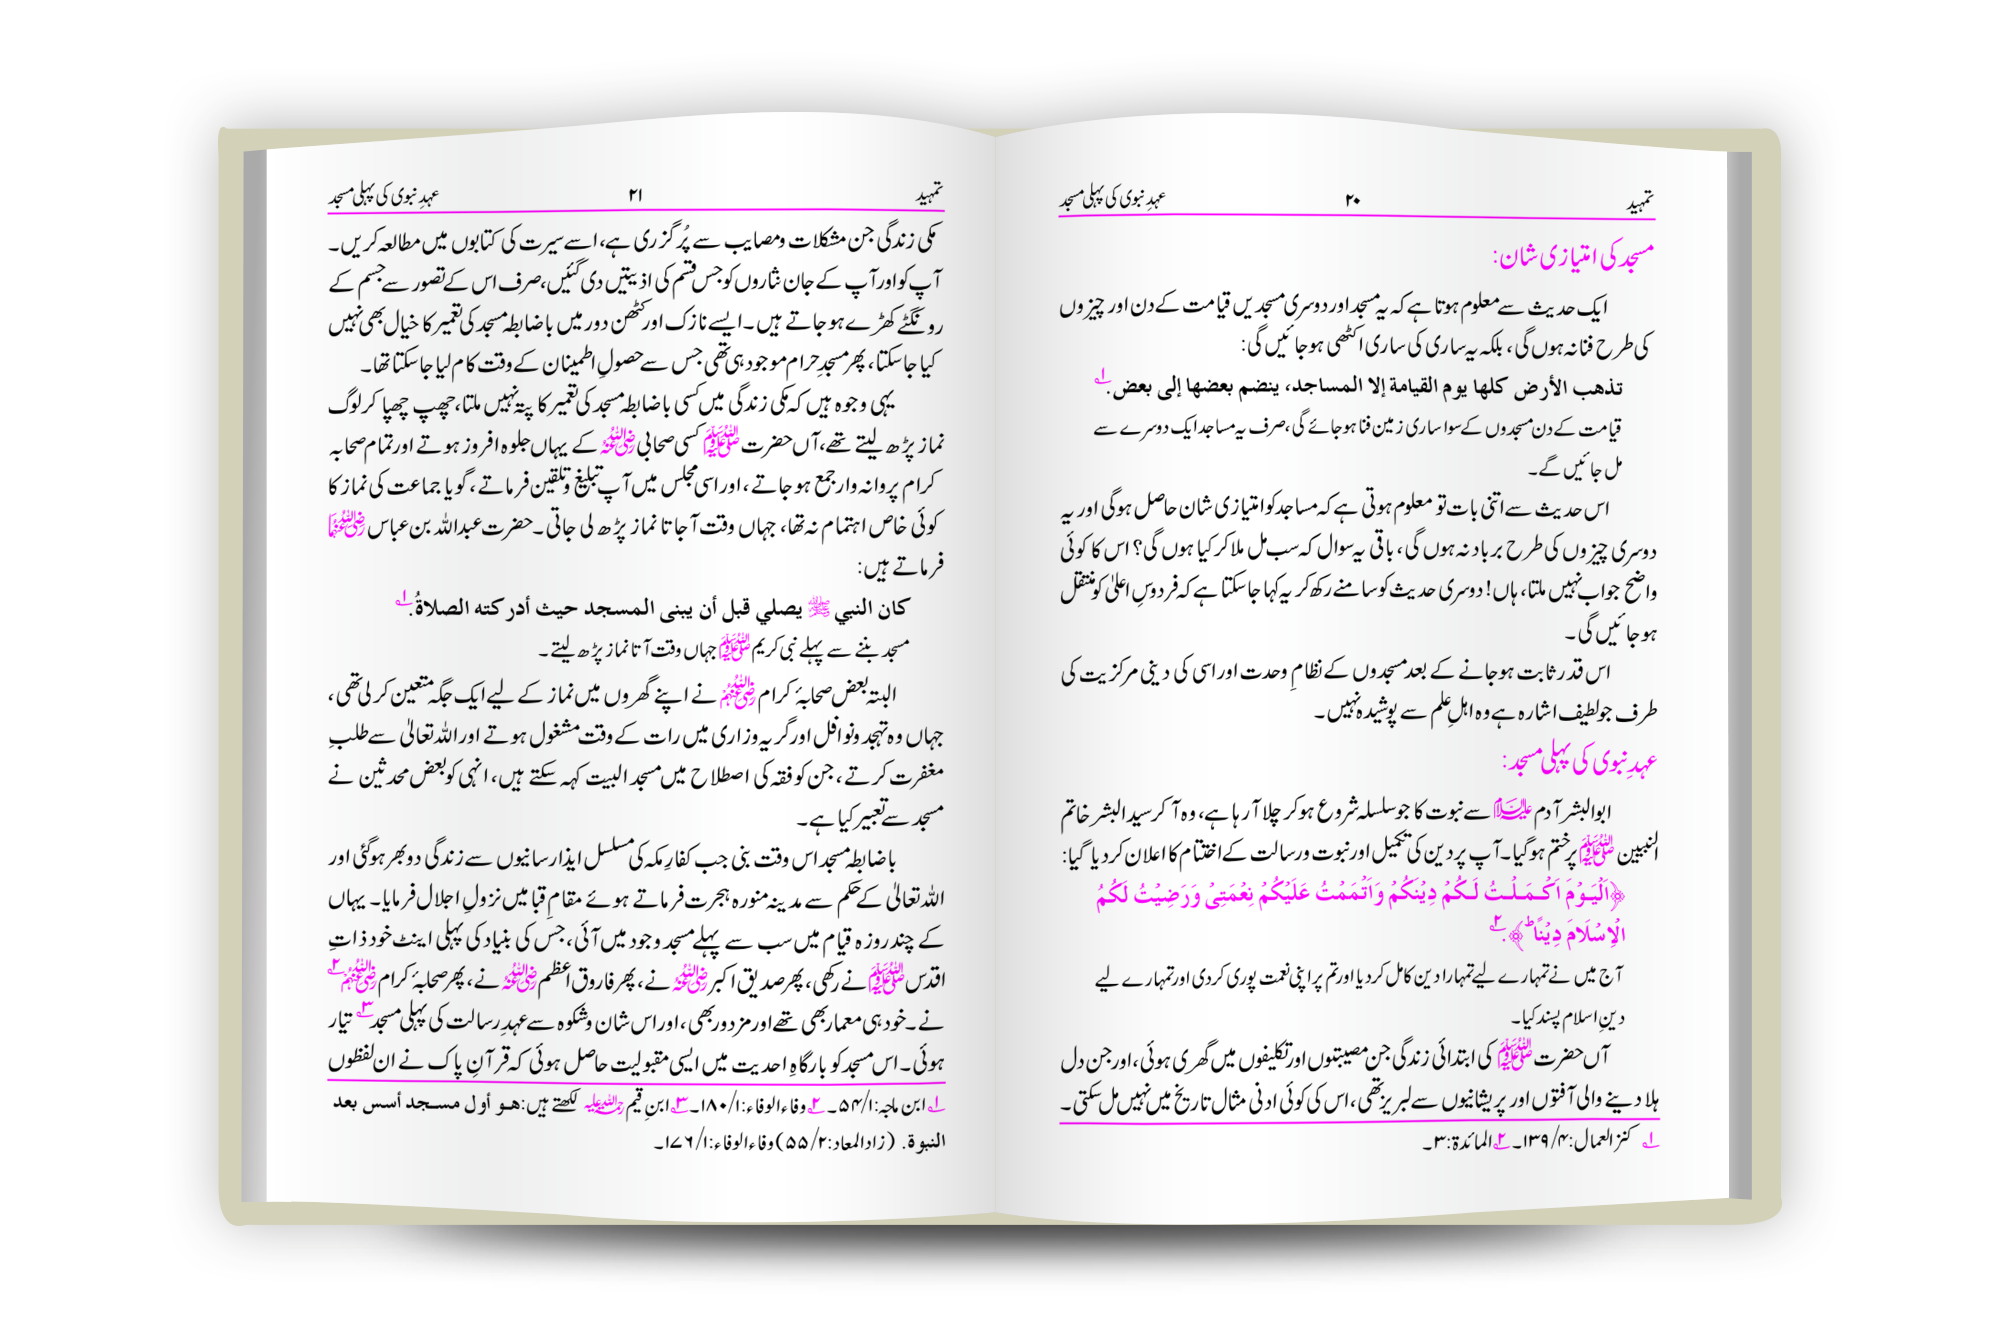 تمہید ۲۰ عہدِ نبوی کی پہلی مسجد
مسجد کی امتیازی شان:
ایک حدیث سے معلوم ہوتا ہے کہ یہ مسجد اور دوسری مسجدیں قیامت کے دن اور چیزوں
کی طرح فنا نہ ہوں گی، بلکہ یہ ساری کی ساری اکٹھی ہوجائیں گی:
تذهب الأرض كلها يوم القيامة إلا المساجد، ينضم بعضها إلى بعض.۱
قیامت کے دن مسجدوں کے سوا ساری زمین فنا ہوجائے گی، صرف یہ مساجد ایک دوسرے سے
مل جائیں گے۔
اس حدیث سے اتنی بات تو معلوم ہوتی ہے کہ مساجد کو امتیازی شان حاصل ہوگی اور یہ
دوسری چیزوں کی طرح برباد نہ ہوں گی، باقی یہ سوال کہ سب مل ملا کر کیا ہوں گی؟ اس کا کوئی
واضح جواب نہیں ملتا، ہاں! دوسری حدیث کو سامنے رکھ کر یہ کہا جاسکتا ہے کہ فردوسِ اعلیٰ کو منتقل
ہوجائیں گی۔
اس قدر ثابت ہوجانے کے بعد مسجدوں کے نظامِ وحدت اور اسی کی دینی مرکزیت کی
طرف جو لطیف اشارہ ہے وہ اہلِ علم سے پوشیدہ نہیں۔
عہدِ نبوی کی پہلی مسجد:
ابوالبشر آدم علیہ السلام سے نبوت کا جو سلسلہ شروع ہوکر چلا آرہا ہے، وہ آکر سید البشر خاتم
النبیین ﷺ پر ختم ہوگیا۔ آپ پر دین کی تکمیل اور نبوت و رسالت کے اختتام کا اعلان کردیا گیا:
﴿اَلْيَوْمَ اَكْمَلْتُ لَكُمْ دِيْنَكُمْ وَاَتْمَمْتُ عَلَيْكُمْ نِعْمَتِيْ وَرَضِيْتُ لَكُمُ
الْاِسْلَامَ دِيْنًا ؕ﴾.۲
آج میں نے تمہارے لیے تمہارا دین کامل کردیا اور تم پر اپنی نعمت پوری کردی اور تمہارے لیے
دینِ اسلام پسند کیا۔
آں حضرت ﷺ کی ابتدائی زندگی جن مصیبتوں اور تکلیفوں میں گھری ہوئی، اور جن دل
ہلا دینے والی آفتوں اور پریشانیوں سے لبریز تھی، اس کی کوئی ادنی مثال تاریخ میں نہیں مل سکتی۔
۱ کنز العمال: ۴/۱۳۹۔ ۲ المائدۃ: ۳۔
تمہید ۲۱ عہدِ نبوی کی پہلی مسجد
مکی زندگی جن مشکلات و مصایب سے پُر گزری ہے، اسے سیرت کی کتابوں میں مطالعہ کریں۔
آپ کو اور آپ کے جان نثاروں کو جس قسم کی اذیتیں دی گئیں، صرف اس کے تصور سے جسم کے
رونگٹے کھڑے ہوجاتے ہیں۔ ایسے نازک اور کٹھن دور میں باضابطہ مسجد کی تعمیر کا خیال بھی نہیں
کیا جاسکتا، پھر مسجدِ حرام موجود ہی تھی جس سے حصولِ اطمینان کے وقت کام لیا جاسکتا تھا۔
یہی وجوہ ہیں کہ مکی زندگی میں کسی باضابطہ مسجد کی تعمیر کا پتہ نہیں ملتا، چھپ چھپا کر لوگ
نماز پڑھ لیتے تھے، آں حضرت ﷺ کسی صحابی رضی اللہ عنہ کے یہاں جلوہ افروز ہوتے اور تمام صحابہ
کرام پروانہ وار جمع ہوجاتے، اور اسی مجلس میں آپ تبلیغ و تلقین فرماتے، گویا جماعت کی نماز کا
کوئی خاص اہتمام نہ تھا، جہاں وقت آجاتا نماز پڑھ لی جاتی۔ حضرت عبداللہ بن عباس رضی اللہ عنہما
فرماتے ہیں:
كان النبي ﷺ يصلي قبل أن يبنى المسجد حيث أدركته الصلاةُ.۱
مسجد بننے سے پہلے نبی کریم ﷺ جہاں وقت آتا نماز پڑھ لیتے۔
البتہ بعض صحابۂ کرام رضی اللہ عنہم نے اپنے گھروں میں نماز کے لیے ایک جگہ متعین کرلی تھی،
جہاں وہ تہجد و نوافل اور گریہ وزاری میں رات کے وقت مشغول ہوتے اور اللہ تعالیٰ سے طلبِ
مغفرت کرتے، جن کو فقہ کی اصطلاح میں مسجد البیت کہہ سکتے ہیں، انہی کو بعض محدثین نے
مسجد سے تعبیر کیا ہے۔
باضابطہ مسجد اس وقت بنی جب کفارِ مکہ کی مسلسل ایذا رسانیوں سے زندگی دوبھر ہوگئی اور
اللہ تعالیٰ کے حکم سے مدینہ منورہ ہجرت فرماتے ہوئے مقامِ قبا میں نزولِ اجلال فرمایا۔ یہاں
کے چند روزہ قیام میں سب سے پہلے مسجد وجود میں آئی، جس کی بنیاد کی پہلی اینٹ خود ذاتِ
اقدس ﷺ نے رکھی، پھر صدیق اکبر رضی اللہ عنہ نے، پھر فاروق اعظم رضی اللہ عنہ نے، پھر صحابۂ کرام رضی اللہ عنہم۲
نے۔ خود ہی معمار بھی تھے اور مزدور بھی، اور اس شان و شکوہ سے عہدِ رسالت کی پہلی مسجد۳ تیار
ہوئی۔ اس مسجد کو بارگاہِ احدیت میں ایسی مقبولیت حاصل ہوئی کہ قرآنِ پاک نے ان لفظوں
۱ ابن ماجہ: ۱/۵۴۔ ۲ وفاء الوفاء: ۱/۱۸۰۔ ۳ ابنِ قیم رحمۃ اللہ علیہ لکھتے ہیں: هو أول مسجد أسس بعد
النبوة. (زاد المعاد: ۲/۵۵) وفاء الوفاء: ۱/۱۷۶۔